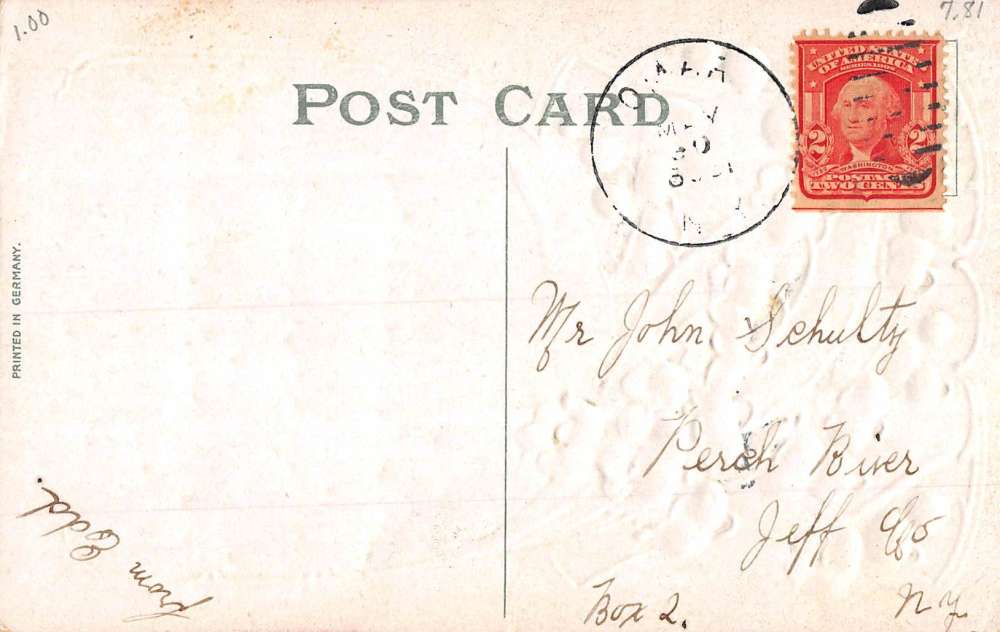 1.00
7.81
POST CARD
UNITED STATES
OF AMERICA
2 2
WASHINGTON
POSTAGE
TWO CENTS
MAY
30
N
PRINTED IN GERMANY.
Mr John Schultz
Perch River
Jeff Co
Box 2. N.Y.
from Edd.